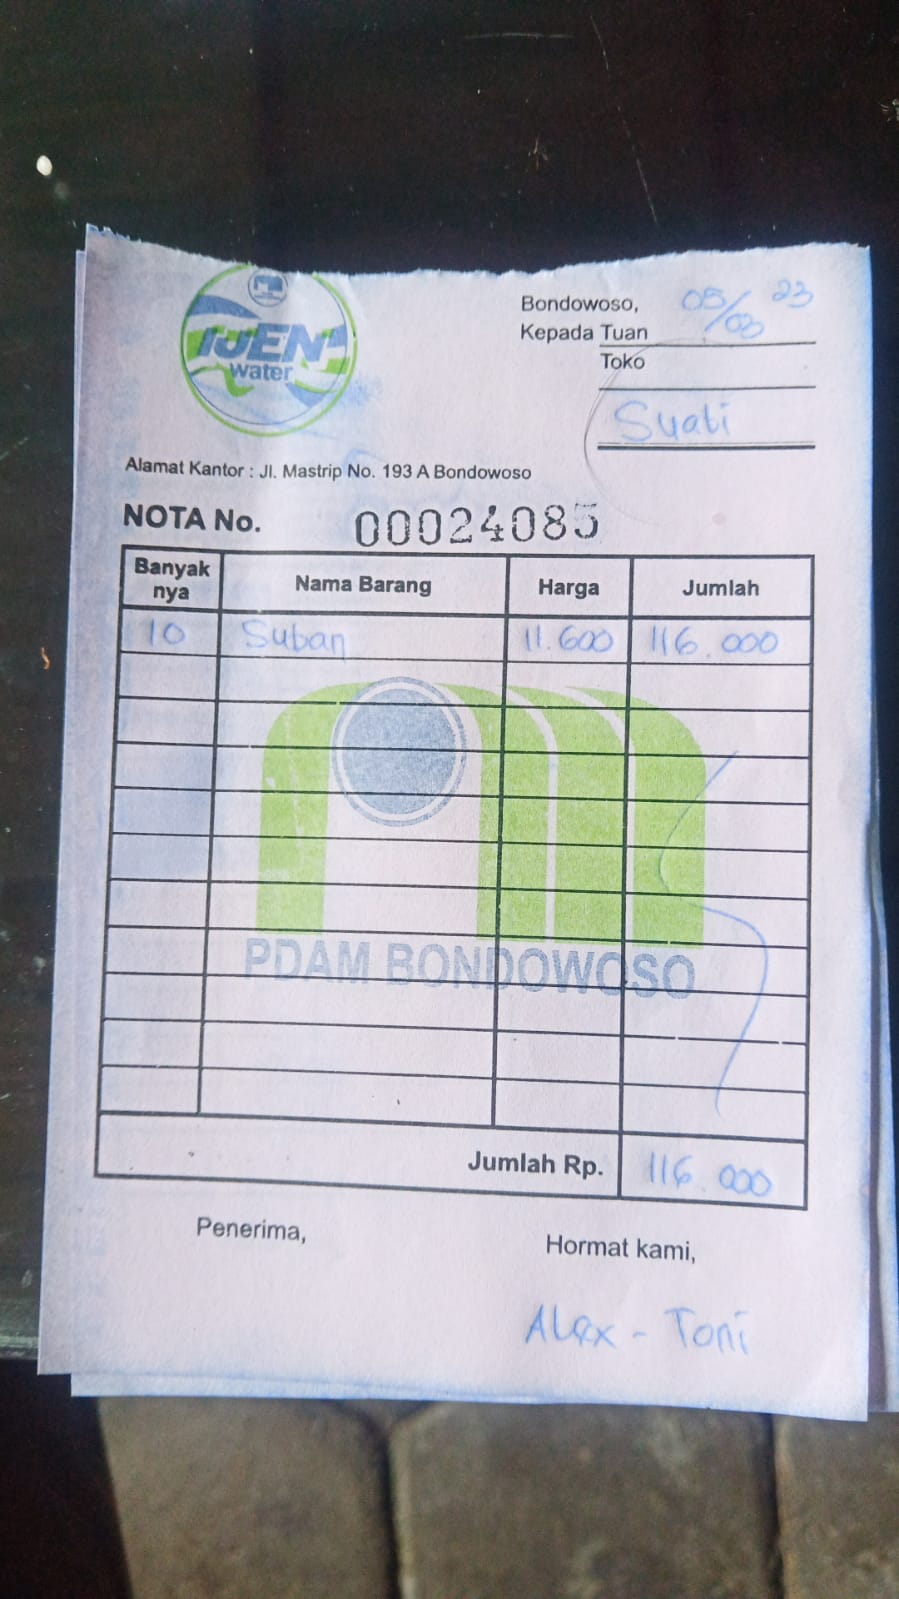 IJEN
water
Bondowoso, 05/03 23
Kepada Tuan
Toko
Suati
Alamat Kantor : Jl. Mastrip No. 193 A Bondowoso
NOTA No. 00024085
Banyak nya Nama Barang Harga Jumlah
10 Suban 11.600 116.000
PDAM BONDOWOSO
Jumlah Rp. 116.000
Penerima, Hormat kami,
Alex - Toni